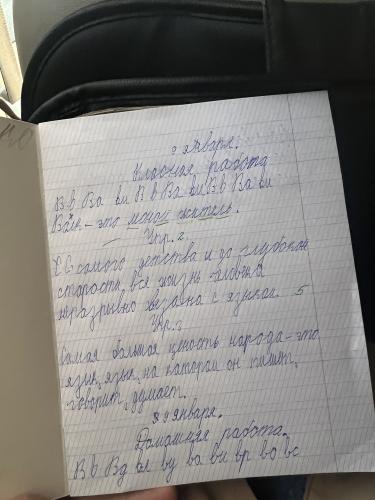 9 января.
Класная работа
В в Ва ви В в Ва ви В в Ва ви
это житель.
Упр. 2.
С самого детства и до глубокой
старости, вся жизнь человека
неразрывно связана с языком. 5
Упр. 3
Самая большая ценость народа - это
язык, язык, на котором он пишет,
говорит, думает.
9 января.
Домашняя работа.
В в Вд ву ва ви вр во вс